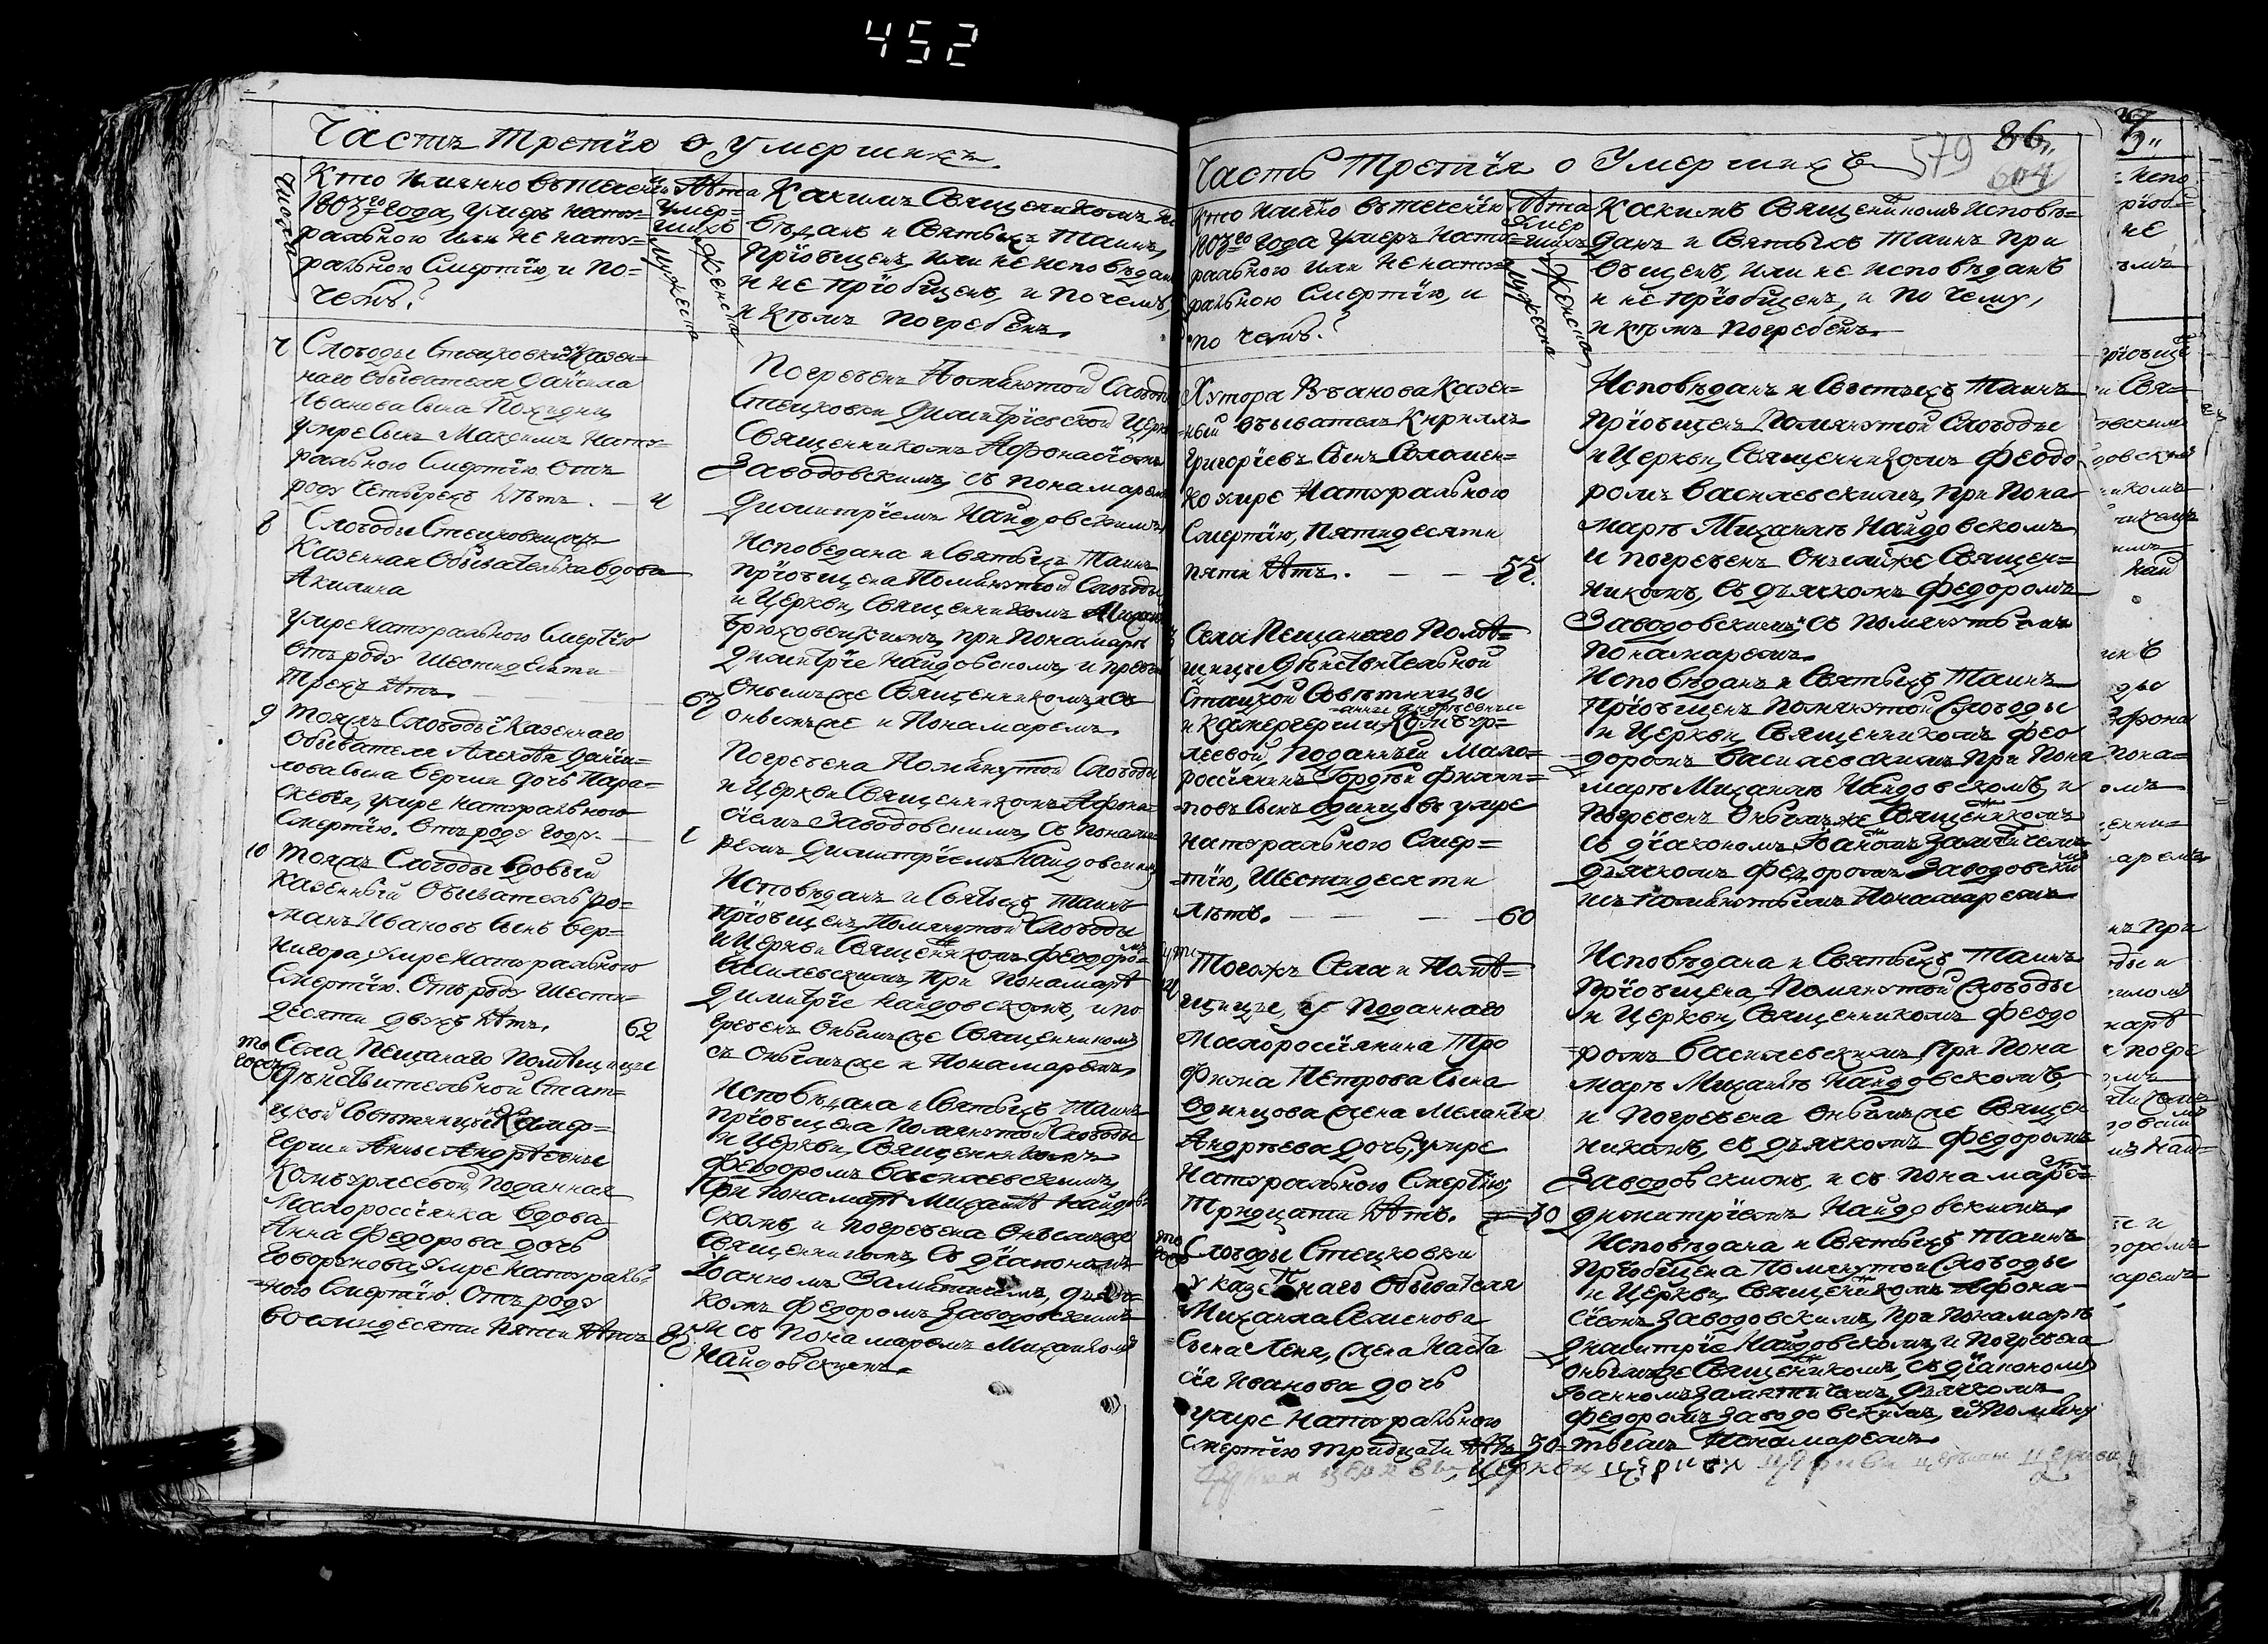 452
Часть третїя о умершихъ
Числа
Кто имянно въ теченїи
1807го года, умеръ нату=
ральною или не нату=
ральною смертїю, и по=
чему?
Лѣта
умер=
шихъ
Мужеска
Женска
Какимъ священикомъ
вѣданъ и святыхъ таинъ
прїобщенъ, или не исповѣданъ
и не прїобщенъ, и почему,
и кѣмъ погребенъ
Слободы Стецковки казен=
наго обывателя Данїила
Иванова сына
умре сынъ Максимъ нату=
ральною смертїю отъ
роду четырехъ лѣтъ. 4
Погребенъ помянутой слободы
Стецковки Димитрїевской церкви
священникомъ Афонасїемъ
Заводовскимъ, съ понамаремъ
Димитрїемъ Найдовскимъ
8
Слободы Стецковки
казенная обывателька вдова
Акилина
умре натуральною смертїю
отъ роду шестидесяти
трехъ лѣтъ
Исповедана и святыхъ таинъ
прїобщена помянутой слободы
и церкви, священникомъ
при понамарѣ
Димитрїе Найдовскомъ, и
онымъ же священникомъ съ
онымъ же и понамаремъ
9
Тояжъ слободы казеннаго
обывателя Алексѣя Данїи=
лова сына дочь Пара=
скевїя, умре натуральною
смертїю. Отъ роду году. 1
Погребена помянутой слободы
и церкви священникомъ Афона=
сїемъ Заводовскимъ, съ понама=
ремъ Димитрїемъ Найдовскимъ
10
Тояжъ слободы вдовый
казенный обыватель Ро=
манъ Ивановъ сынъ Вер=
нигора, умре натуральною
смертїю. Отъ роду шести=
десяти двухъ лѣтъ. 62
Исповѣданъ и святыхъ таинъ
прїобщенъ помянутой слободы
и церкви священикомъ Феодоромъ
Василевскимъ, при понамарѣ
Димитрїе Найдовскомъ, и по
гребенъ онымъ же священникомъ
съ онымъ же и понамаремъ
того жъ
Села Пещанаго помѣщицы
дѣйствительной стат=
ской совѣтницы и камер=
герши Анны Андрѣевны
Комбурлеевой, поданная
малороссїянка вдова
Анна Федорова дочь
Говорунова, умре натураль=
ною смертїю. Отъ роду
восмидесяти пяти лѣтъ 85
Исповѣдана и святыхъ таинъ
прїобщена помянутой слободы
и церкви, священникомъ
Феодоромъ Василевскимъ,
при понамарѣ Михаилѣ Найдов=
скомъ, и погребена онымъ же
священникомъ, съ дїакономъ
Іоанномъ Замятичемъ, дьяч=
комъ Федоромъ Заводовскимъ
и съ понамаремъ Михаиломъ
Найдовскимъ.
86
579
604
Часть третїя о умершихъ
Кто имянно въ теченїи
1807го года умеръ нату=
ральною или не нату=
ральною смертїю, и
по чему?
Лѣта
умер
шихъ
Мужеска
Женска
Какимъ священикомъ исповѣ=
данъ и святыхъ таинъ при
общенъ, или не исповѣданъ
и не прїобщенъ, и по чему,
и кѣмъ погребенъ
Хутора казен=
ный обыватель Кириллъ
Григорїевъ сынъ Соломен=
ко умре натуральною
смертїю, пятидесяти
пяти лѣтъ. 55.
Исповѣданъ и святыхъ таинъ
прїобщенъ помянутой слободы
и церкви, священникомъ Феодо
ромъ Василевскимъ, при пона
марѣ Михаилѣ Найдовскомъ
и погребенъ онымъ же священ=
никомъ, съ дьячкомъ Федоромъ
Заводовскимъ, съ помянутымъ
понамаремъ.
Села Пещанаго помѣ=
щицы дѣйствительной
статской совѣтницы
Анны Андрѣевны
и камергерши Комбур=
леевой, поданный мало=
россїянинъ Гордѣй Филип=
повъ сынъ Одинцовъ умре
натуральною смер=
тїю, шестидесяти
лѣтъ. 60
Исповѣданъ и святыхъ таинъ
прїобщенъ помянутой слободы
и церкви священникомъ Фео
доромъ Василевскимъ при пона
марѣ Михаилѣ Найдовскомъ, и
погребенъ онымъ же священикомъ
съ дїакономъ Іоаномъ Замятичемъ
дьячкомъ Федоромъ Заводовскимъ
и съ помянутымъ понамаремъ
Тогожъ села и помѣ=
щицы, у поданнаго
малороссїянина Тро
фима Петрова сына
Одинцова жена Меланїя
Андрѣева дочь, умре
натуральною смертїю,
тридцати лѣтъ. 30
Исповѣдана и святыхъ таинъ
прїобщена помянутой слободы
и церкви, священникомъ Феодо
ромъ Василевскимъ, при пона
марѣ Михаилѣ Найдовскомъ,
и погребена онымъ же священ
никомъ, съ дьячкомъ Федоромъ
Заводовскимъ, и съ понамаре=
Димитрїемъ Найдовскимъ.
Слободы Стецковки
у казеннаго обывателя
Михаила Семенова
сына жена Наста
сїя Иванова дочь
умре натуральною
смертїю тридцати лѣтъ 30
Исповѣдана и святыхъ таинъ
прїобщена помянутой слободы
и церкви, священикомъ Афона=
сїемъ Заводовскимъ, при понамарѣ
Димитрїе Найдовскомъ, и погребена
онымъ же священикомъ, съ дїакономъ
Іоанномъ Замятичемъ, дьячкомъ
Федоромъ Заводовскимъ, и помяну
тымъ понамаремъ.
церкви